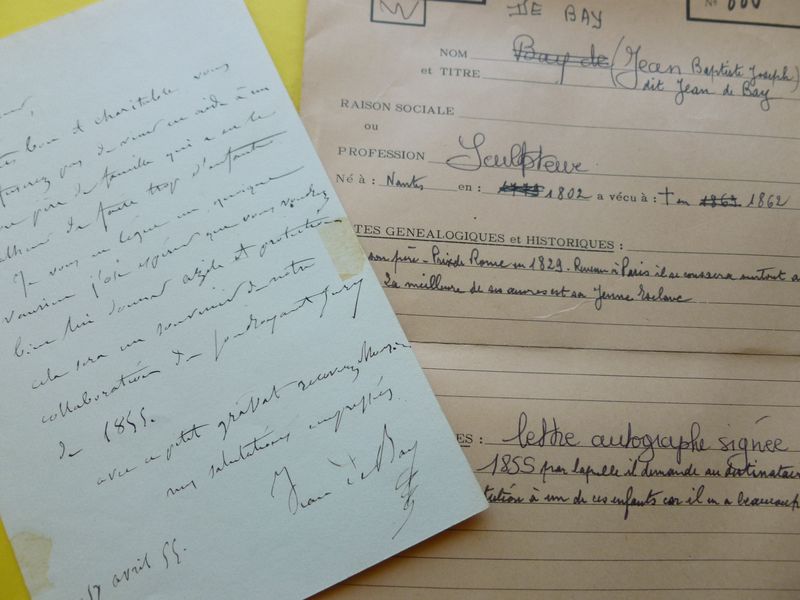 bon et charitable vous
pas de venir en aide à un
père de famille qui a eu le
malheur de faire trop d'enfants
Je vous en lègue un quoique
j'ose espérer que vous voudrez
bien lui donner asile et protection
cela sera un souvenir de notre
collaboration du foudroyant jury
de 1855.
avec ce petit grabat recevez Monsieur
mes salutations empressées
Jean De Bay
17 avril 55.
DE BAY
No
NOM Bay de (Jean Baptiste Joseph)
et TITRE dit Jean de Bay
RAISON SOCIALE
ou
PROFESSION Sculpteur
Né à : Nantes en : 1802 a vécu à : † en 1862
TES GENEALOGIQUES et HISTORIQUES :
son père - Prix de Rome en 1829. Revenu à Paris il se consacra surtout a
La meilleure de ses œuvres est sa Jeune Esclave
ES : lettre autographe signée
1855 par laquelle il demande au destinatai
à un de ces enfants car il en a beaucoup